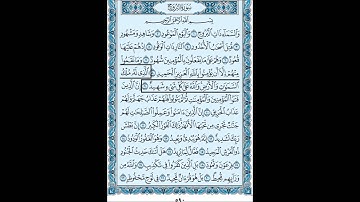 سُورَةُ الْبُرُوجِ
بِسْمِ اللَّهِ الرَّحْمَٰنِ الرَّحِيمِ
وَالسَّمَاءِ ذَاتِ الْبُرُوجِ ١ وَالْيَوْمِ الْمَوْعُودِ ٢ وَشَاهِدٍ وَمَشْهُودٍ ٣
قُتِلَ أَصْحَابُ الْأُخْدُودِ ٤ النَّارِ ذَاتِ الْوَقُودِ ٥ إِذْ هُمْ عَلَيْهَا
قُعُودٌ ٦ وَهُمْ عَلَىٰ مَا يَفْعَلُونَ بِالْمُؤْمِنِينَ شُهُودٌ ٧ وَمَا نَقَمُوا
مِنْهُمْ إِلَّا أَنْ يُؤْمِنُوا بِاللَّهِ الْعَزِيزِ الْحَمِيدِ ٨ الَّذِي لَهُ مُلْكُ
السَّمَاوَاتِ وَالْأَرْضِ وَاللَّهُ عَلَىٰ كُلِّ شَيْءٍ شَهِيدٌ ٩ إِنَّ الَّذِينَ
فَتَنُوا الْمُؤْمِنِينَ وَالْمُؤْمِنَاتِ ثُمَّ لَمْ يَتُوبُوا فَلَهُمْ عَذَابُ جَهَنَّمَ وَلَهُمْ
عَذَابُ الْحَرِيقِ ١٠ إِنَّ الَّذِينَ آمَنُوا وَعَمِلُوا الصَّالِحَاتِ لَهُمْ
جَنَّاتٌ تَجْرِي مِنْ تَحْتِهَا الْأَنْهَارُ ذَٰلِكَ الْفَوْزُ الْكَبِيرُ ١١ إِنَّ بَطْشَ
رَبِّكَ لَشَدِيدٌ ١٢ إِنَّهُ هُوَ يُبْدِئُ وَيُعِيدُ ١٣ وَهُوَ الْغَفُورُ الْوَدُودُ ١٤
ذُو الْعَرْشِ الْمَجِيدُ ١٥ فَعَّالٌ لِمَا يُرِيدُ ١٦ هَلْ أَتَاكَ حَدِيثُ الْجُنُودِ ١٧
فِرْعَوْنَ وَثَمُودَ ١٨ بَلِ الَّذِينَ كَفَرُوا فِي تَكْذِيبٍ ١٩ وَاللَّهُ مِنْ
وَرَائِهِمْ مُحِيطٌ ٢٠ بَلْ هُوَ قُرْآنٌ مَجِيدٌ ٢١ فِي لَوْحٍ مَحْفُوظٍ ٢٢
٥٩٠